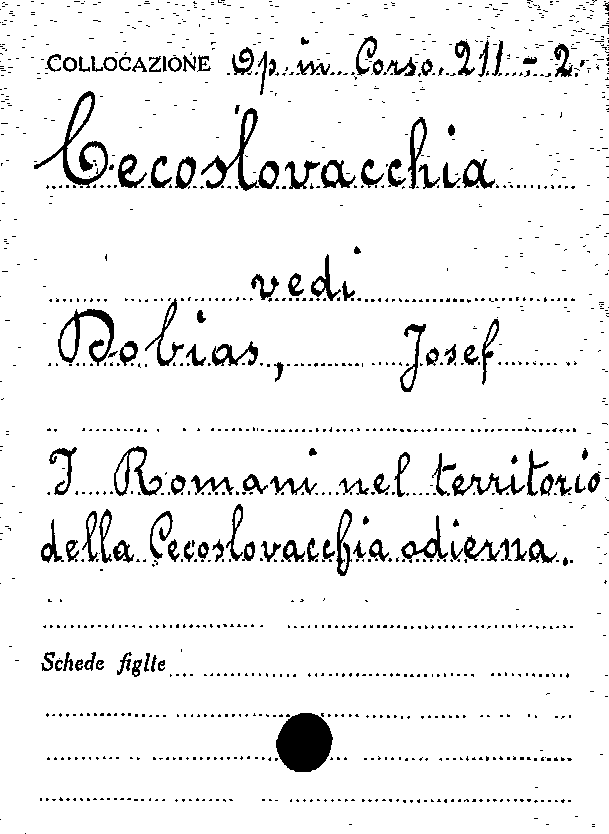 COLLOCAZIONE Op. in Corso. 211 - 2.
Cecoslovacchia
vedi
Dobias, Josef
I Romani nel territorio
della Cecoslovacchia odierna.
Schede figlie